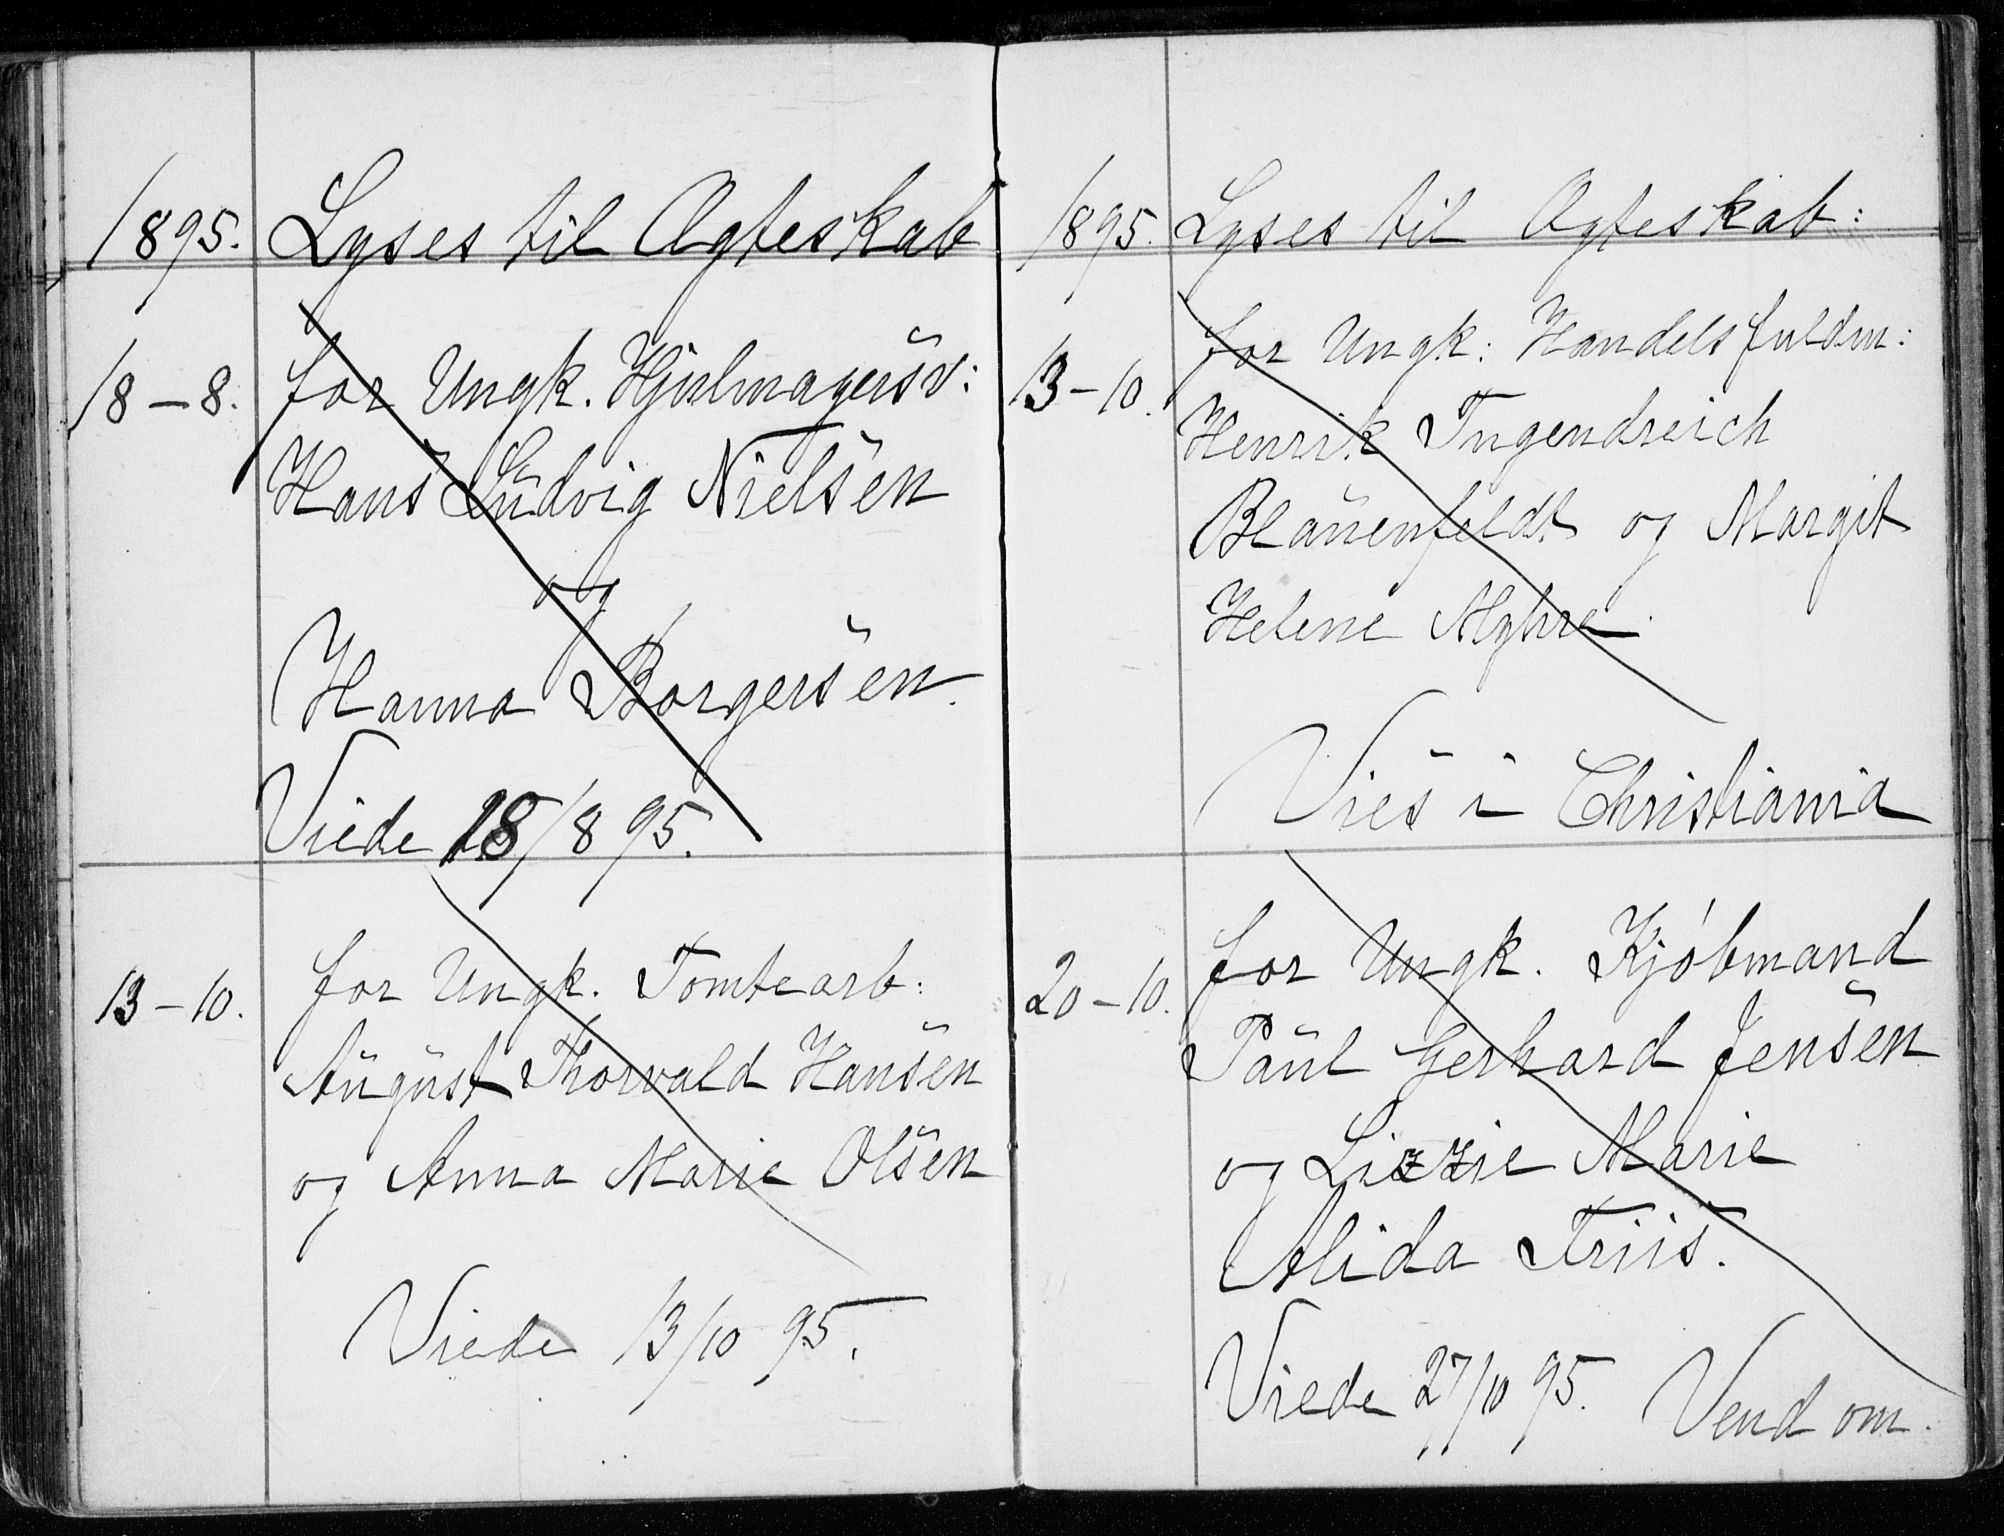 1895. Lyses til Ægteskab
18-8. for Ungk. Hjulmagersv:
Hans Ludvig Nielsen
og
Hanna Borgersen.
Viede 18/8 95.
13-10. for Ungk. Tomtearb:
August Thorvald Hansen
og Anna Marie Olsen
Viede 13/10 95.
1895. Lyses til Ægteskab:
13-10. for Ungk: Handelsfuldm:
Henrik Tugendreich
Blauenfeldt og Margit
Helene Myhre.
Vies i Christiania
20-10. for Ungk. Kjøbmand
Paul Gerhard Jensen
og Lizzie Marie
Alida Friis.
Viede 27/10 95. Vend om.